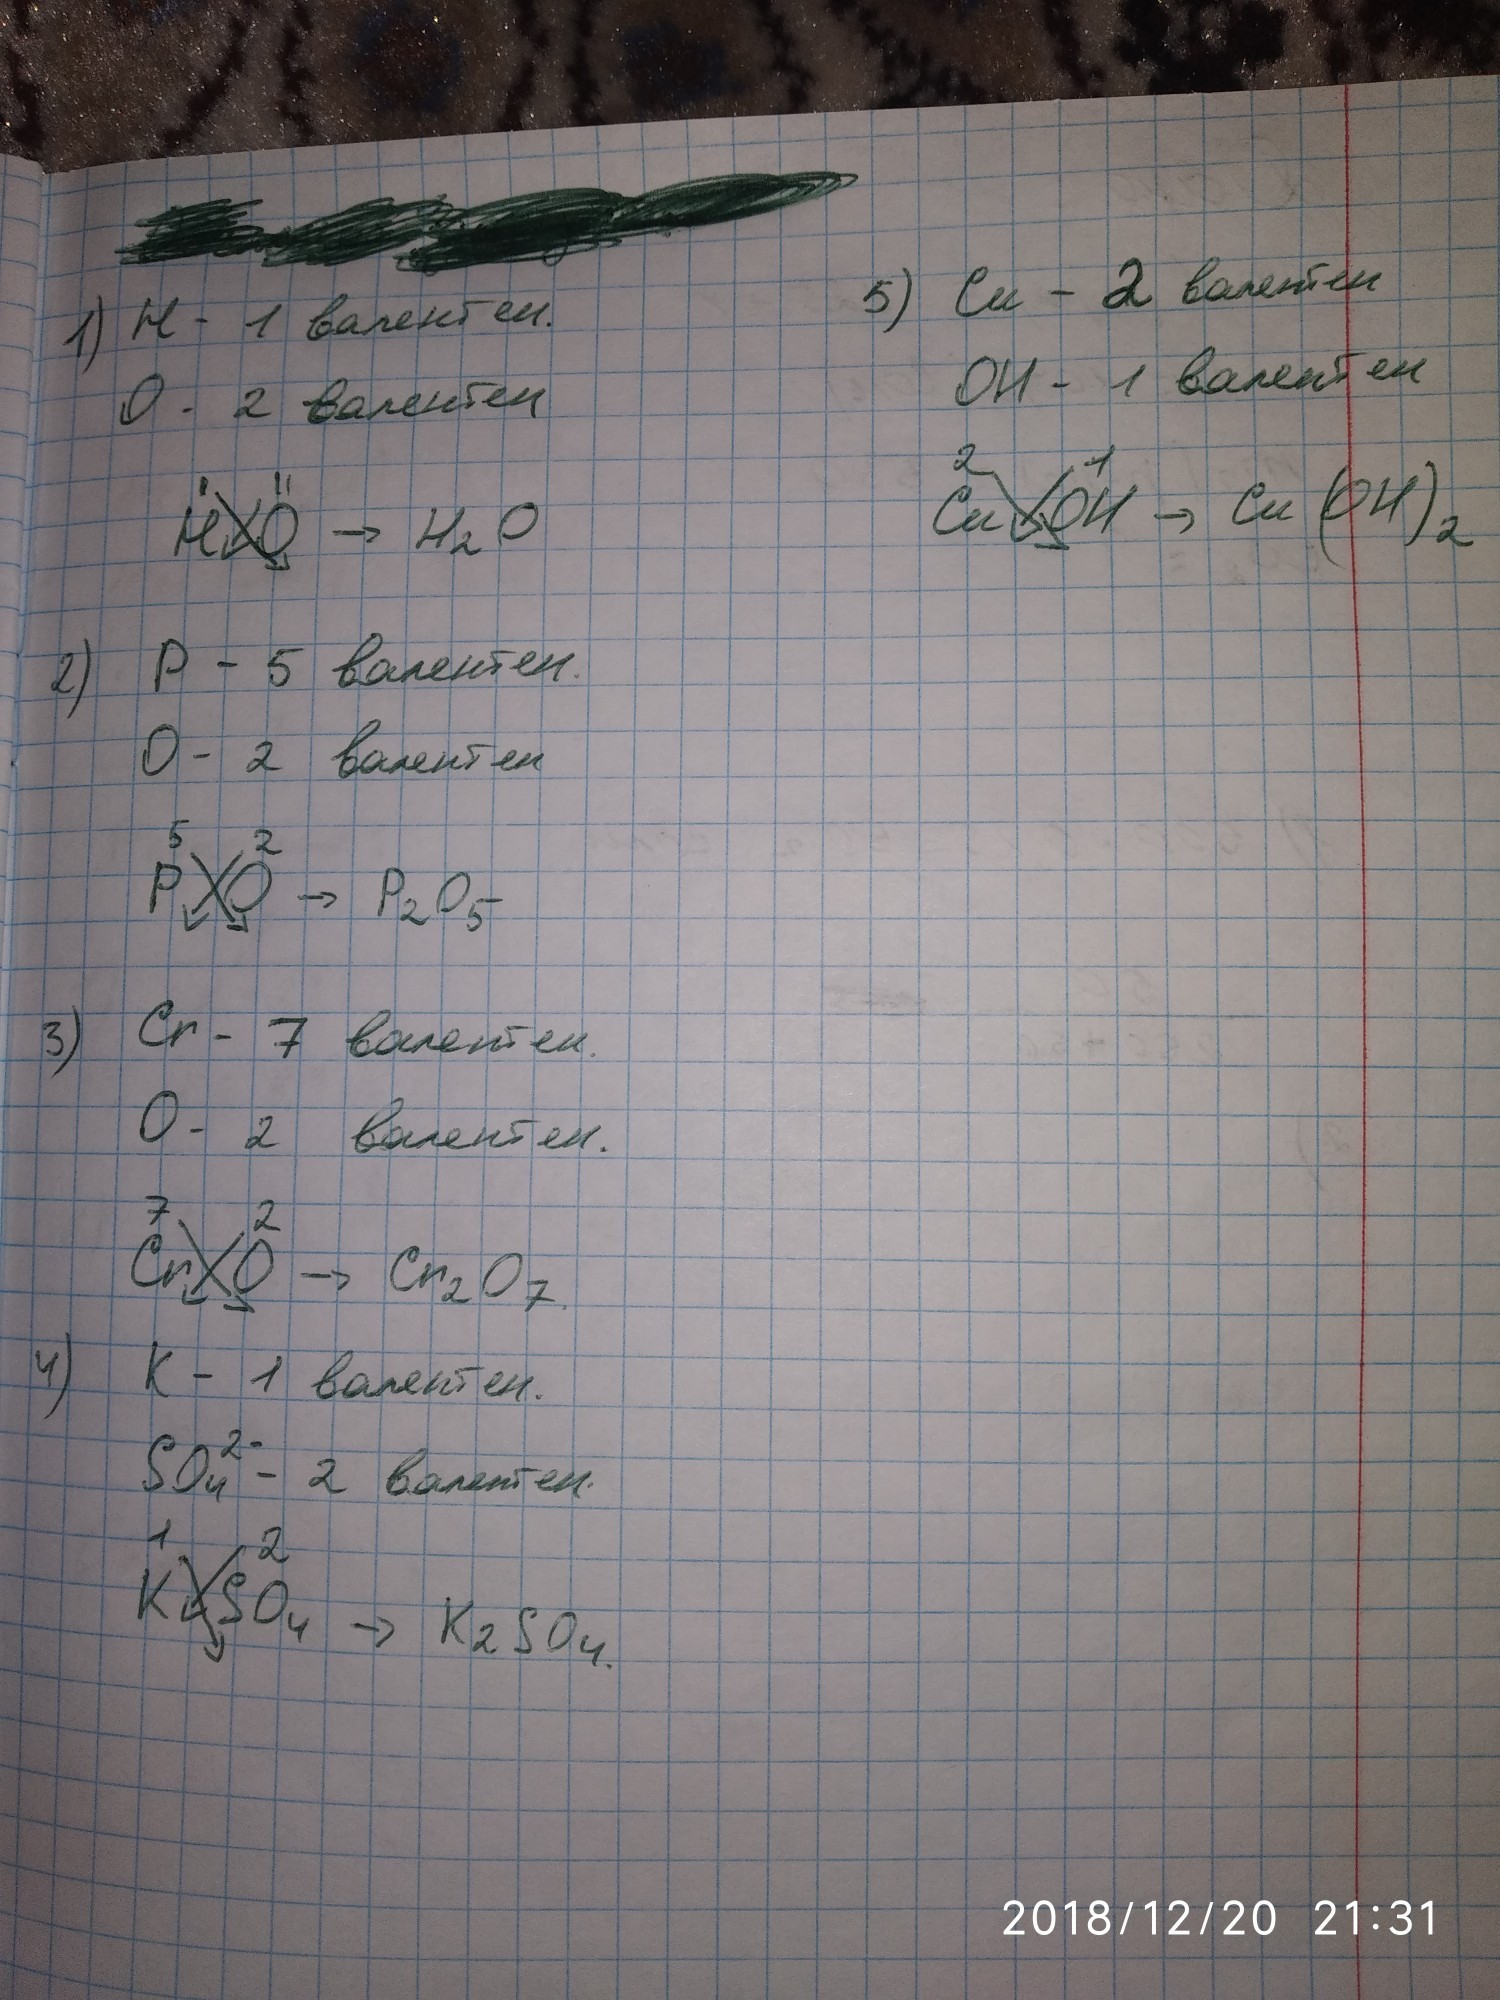 1) H - 1 валентен.
O - 2 валентен
H O → H₂O
2) P - 5 валентен.
O - 2 валентен
5 2
P O → P₂O₅
3) Cr - 7 валентен.
O - 2 валентен.
7 2
Cr O → Cr₂O₇.
4) K - 1 валентен.
SO₄²⁻ - 2 валентен.
1 2
K SO₄ → K₂SO₄.
5) Cu - 2 валентен
OH - 1 валентен
2 1
Cu OH → Cu(OH)₂
2018/12/20 21:31